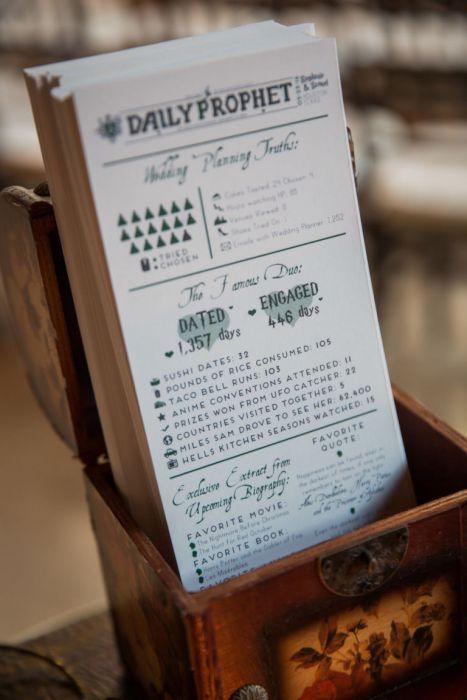 THE DAILY PROPHET
Wedding Planning Truths:
Cakes Tasted: 24 Chosen: 4
Hours watching HP: 85
Venues Viewed: 8
Shoes Tried On: 1
Emails with Wedding Planner: 1,252
= TRIED
= CHOSEN
The Famous Duo:
DATED
1,357 days
ENGAGED
446 days
SUSHI DATES: 32
POUNDS OF RICE CONSUMED: 105
TACO BELL RUNS: 103
ANIME CONVENTIONS ATTENDED: 11
PRIZES WON FROM UFO CATCHER: 22
COUNTRIES VISITED TOGETHER: 5
MILES SAM DROVE TO SEE HER: 62,800
HELLS KITCHEN SEASONS WATCHED: 15
Exclusive Extract from
Upcoming Biography:
FAVORITE MOVIE:
The Nightmare Before Christmas
The Hunt For Red October
FAVORITE BOOK:
Harry Potter and the Goblet of Fire
Les Misérables
FAVORITE
QUOTE:
Happiness can be found, even in
the darkest of times, if one only
remembers to turn on the light.
Albus Dumbledore, Harry Potter
and the Prisoner of Azkaban
Even the darkest